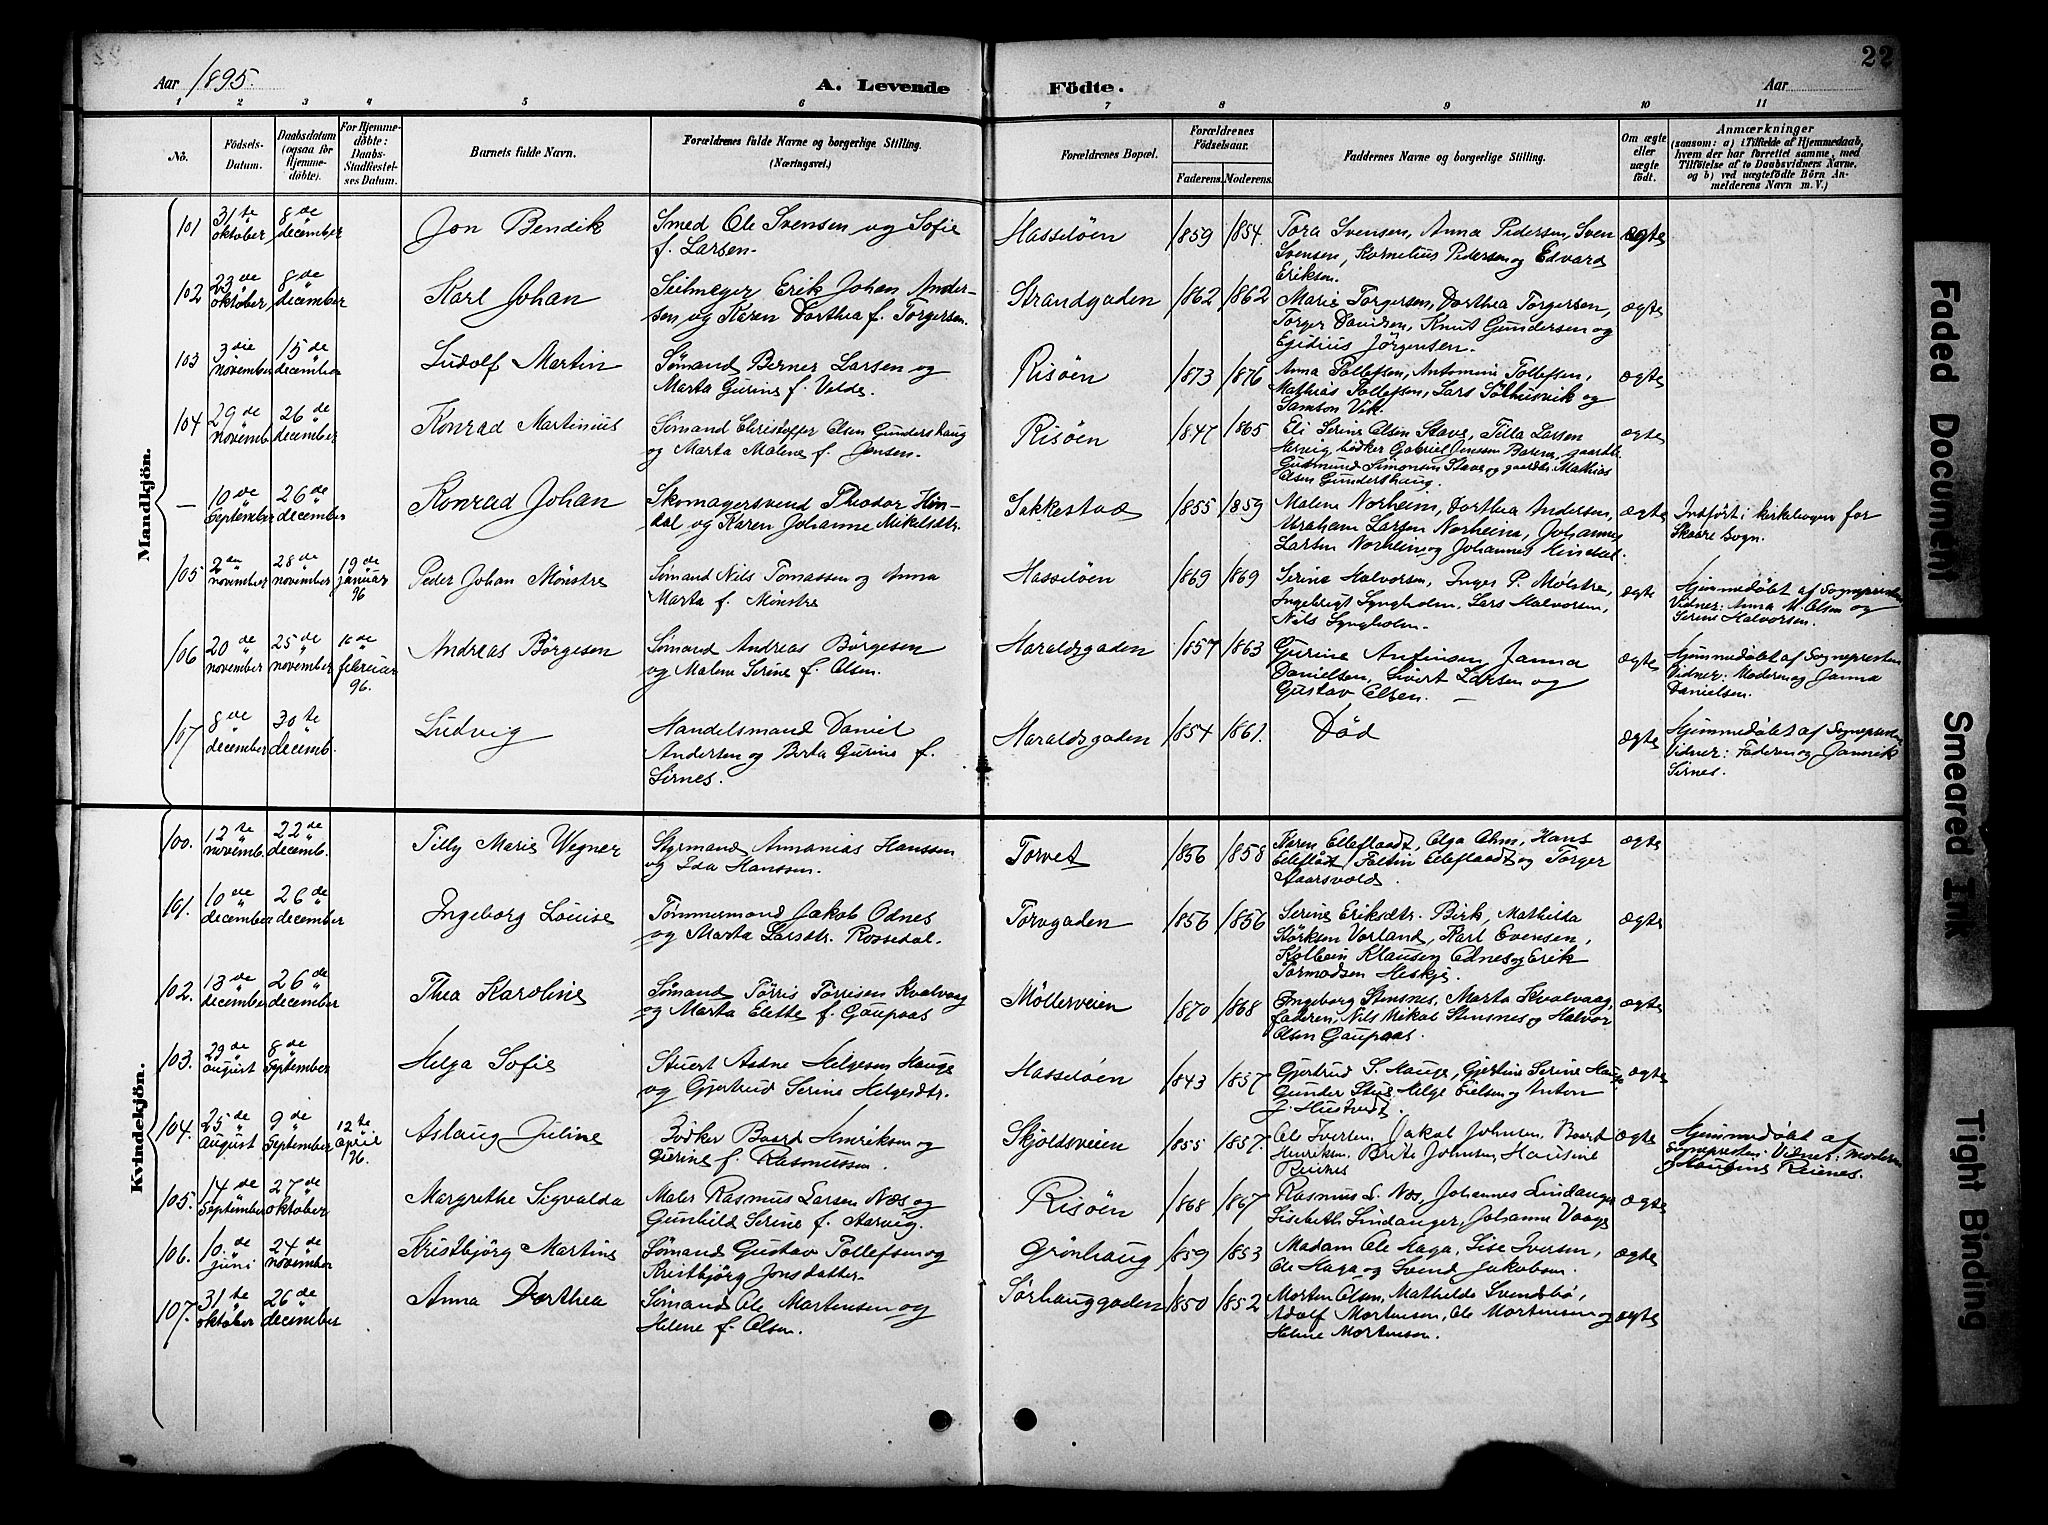 22
Aar 1895.
A. Levende
Födte.
Aar
1 2 3 4 5 6 7 8 9 10 11
No.
Födsels-Datum.
Daabsdatum (ogsaa for Hjemme-döbte).
For Hjemme-döbte: Daabs-Stadfæstel-ses Datum.
Barnets fulde Navn.
Forældrenes fulde Navne og borgerlige Stilling. (Næringsvei.)
Forældrenes Bopæl.
Forældrenes Födselsaar.
Faderens. Moderens.
Faddernes Navne og borgerlige Stilling.
Om ægte eller uægte födt.
Anmærkninger
(saasom: a) i Tilfælde af Hjemmedaab,
hvem der har forrettet samme, med
Tilföielse af to Daabsvidners Navne,
og b) ved uægtefödte Börn An-
melderens Navn m. V.)
Mandkjön.
101 31te oktober 8de december Jon Bendik Smed Ole Svensen og Sofie
f. Larsen Hasselöen 1859 1854. Tora Svensen, Anna Pedersen, Sven
Svensen, Kornelius Pedersen og Edvard
Eriksen. ægte
102 23de oktober 8de december Karl Johan Seilmager Erik Johan Ander-
sen og Karen Dorthea f. Torgersen. Strandgaden 1862 1862 Marie Torgersen, Dorthea Torgersen,
Torger Davidsen, Knut Gundersen og
Egidius Jörgensen. ægte
103 3die november 15de december Ludolf Martin Sømand Berner Larsen og
Marta Gurine f. Velde. Risöen 1873 1876 Anna Tollefsen, Antomine Tollefsen,
Mathias Tollefsen, Lars Solhusvik og
Samson Vik. ægte
104 29de novemb. 26de december Konrad Martinius Sömand Christoffer Olsen Gundershaug
og Marta Malene f. Jensen. Risöen 1847 1865 Eli Serine Olsen Stave, Tilla Larsen
Hervig, bødker Gabriel Jensen gaardb.
Gudmund Simonsen Stave og gaardbr. Mathias
Olsen Gundershaug. ægte
— 10de September 26de december Konrad Johan Skomagersvend Theodor Hin-
dal og Karen Johanne Mikelsdtr. Sakkestad 1855 1859 Malene Norheim, Dorthea Andersen,
Abraham Larsen Norheim, Johannes
Larsen Norheim og Johannes ægte Indført i kirkebogen for
Skaare Sogn.
105 2den november 28de november 19de januar 96 Peder Johan Mönstre Sömand Nils Tomassen og Anna
Marta f. Mønstre Hasselöen 1869 1869 Serine Halvorsen, Inger P. Mølstre,
Ingebrigt Lyngholm, Lars Halvorsen,
Nils Lyngholm. ægte Hjemmedøbt af Sognepresten
Vidner: Anna M. Olsen og
Serine Halvorsen.
106 20de november 25de november 16de februar 96. Andreas Börgesen Sömand Andreas Börgesen
og Malene Serine f. Olsen. Haraldsgaden 1857 1863 Gurine Anfinsen, Janna
Danielsen, Sivert Larsen og
Gustav Olsen. ægte Hjemmedøbt af Sognepresten
Vidner: Moderen og Janna
Danielsen.
107 8de december 30te decemb. Ludvig Handelsmand Daniel
Andersen og Berta Gurine f.
Sirnes. Haraldsgaden 1854 1861. Död ægte Hjemmedøbt af Sognepresten
Vidner: Faderen og Jannik
Sirnes.
Kvindekjön.
100. 12te novemb. 22de decemb. Tilly Marie Wegner Styrmand Annanias Hanssen
og Ida Hanssen. Torvet 1856 1858 Karen Elleflaadt, Olga Ohm, Hans
Elleflödt, Faltin Elleflaadt og Torger
Staarsvold. ægte
101. 10de december 26de december Ingeborg Louise Tømmermand Jakob Odnes
og Marta Larsdtr. Rossedal. Torvgaden 1856 1856 Serine Eriksdtr. Birk, Mathilda
Störksen Vorland, Karl Evensen,
Kolbein Klausen Ednes og Erik
Tormodsen Heskje. ægte
102. 13de december 26de december Thea Karoline Sömand Törris Törrisen Kvalvaag
og Marta Elette f. Gaupaas Möllerveien 1870 1868 Ingeborg Stensnes, Marta Kvalvaag,
faderen, Nils Mikal Stensnes og Halvor
Olsen Gaupaas. ægte
103. 29de august 8de September Helga Sofie Stuert Aadne Helgesen Hauge
og Gjertrud Serine Helgesdtr. Hasselöen 1843 1857 Gjertrud S. Hauge, Gjertine Serine Hauge
Gunder Stus, Helge Eielsen og Anton
J. Hustvedt. ægte
104. 25de august 9de September 12te april 96. Aslaug Juline Bödker Baard Henriksen og
Gurine f. Rasmussen. Skjoldsveien 1855 1857. Ole Iversen, Jakob Johnsen, Baard
Henriksen, Brite Johnsen, Hansine
Reines ægte Hjemmedøbt af
Sognepresten: Vidner: Moderen
Reines.
105. 14de September 27de oktober Margrethe Sigvalda Maler Rasmus Larsen Næs og
Gunhild Serine f. Aarvig. Risöen 1868 1867 Rasmus L. Næs, Johannes Lindanger
Lisebeth Lindanger, Johanne Vaage ægte
106. 10de juni 24de november Kristbjörg Martine Sömand Gustav Tollefsen og
Kristbjörg Jonsdatter Grönhaug 1859 1853 Madam Ole Haga, Lise Iversen,
Ole Haga og Svend Jakobsen. ægte
107. 31te oktober 26de december Anna Dorthea Sömand Ole Martensen og
Helene f. Olsen. Sörhauggaden 1850 1852 Morten Olsen, Mathilde Svendsbö,
Adolf Mortensen, Ole Mortensen og
Helene Mortensen. ægte
Faded Document
Smeared Ink
Tight Binding